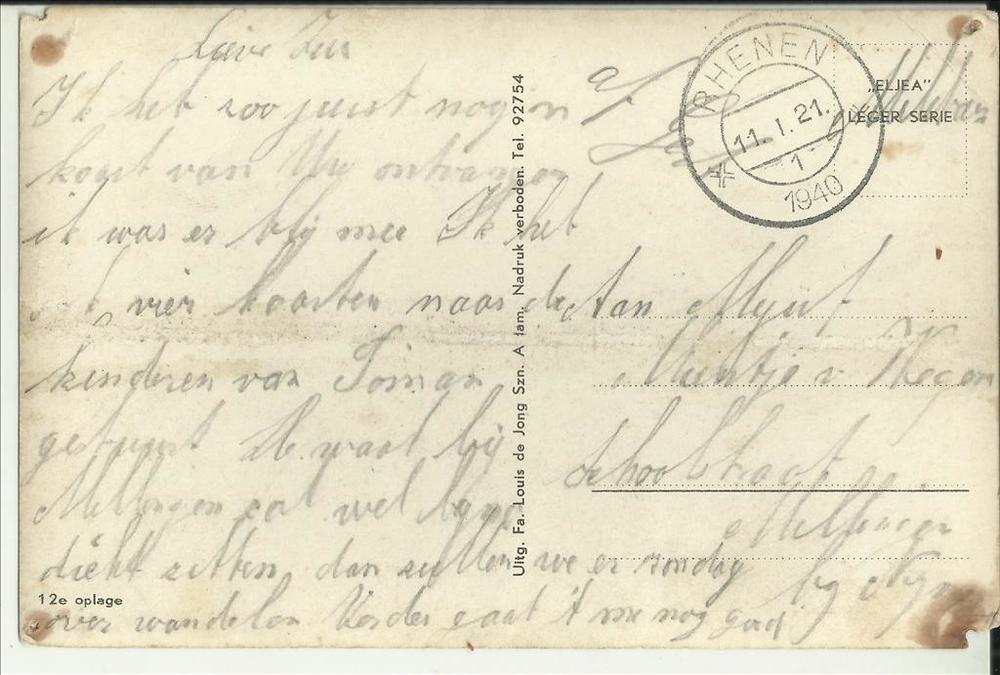 Lieve Zus
Ik heb zoo juist nog een
kaart van Uw ontvangen
ik was er blij mee Ik heb
vier kaarten naar de
kinderen van
gestuurd de waal bij
Millingen zal wel
dicht zitten dan zullen we er zondag
over wandelen Verder gaat 't me nog goed
12e oplage
Uitg. Fa. Louis de Jong Szn. A'dam. Nadruk verboden. Tel. 92754
af
RHENEN
11.I.21.
1
1940
„ELJEA"
LEGER SERIE
Aan Mejuf
Schoolstraat
Millingen
bij Nijm